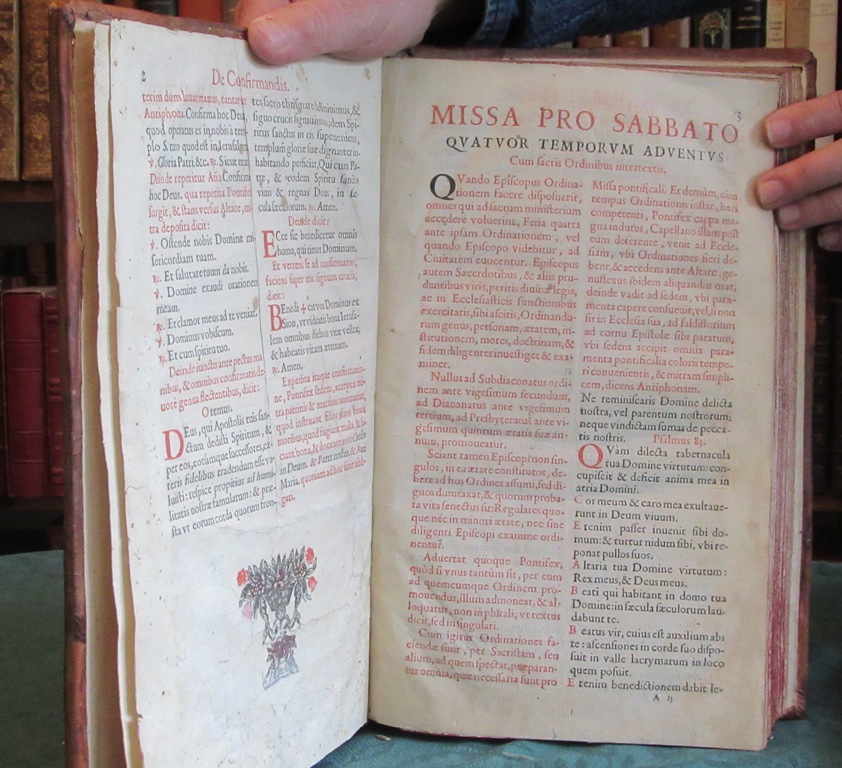 2
De Confirmandis.
terim dum lauat manus, cantatur
Antiphona. Confirma hoc Deus,
quod operatus es in nobis à tem-
plo S. tuo quod est in Ierusalem
℣. Gloria Patri. &c. ℞. Sicut erat
Deinde repetitur Aña Confirma
hoc Deus. qua repetita Pontifex
surgit, & stans versus Altare, mi-
tra deposita dicit:
℣. Ostende nobis Domine mi-
sericordiam tuam.
℞. Et salutare tuum da nobis.
℣. Domine exaudi orationem
meam.
℞. Et clamor meus ad te veniat.
℣. Dominus vobiscum.
℞. Et cum spiritu tuo.
Deinde iunctis ante pectus ma-
nibus, & omnibus confirmatis de-
uotè genu flectentibus, dicit:
Oremus.
DEus, qui Apostolis tuis san-
ctum dedisti Spiritum, &
per eos, eorumque successores, cæ-
teris fidelibus tradendum esse vo-
luisti: respice propitius ad humi-
litatis nostræ famulatum: & præ-
sta vt eorum corda quorum fron-
tes sacro chrismate liniuimus, &
signo crucis signauimus, idem Spi-
ritus sanctus in eis superueniens,
templum gloriæ suæ dignanter in-
habitando perficiat, Qui cum Pa-
tre, & eodem Spiritu sancto
viuis & regnas Deus, in sæ-
cula seculorum. ℞. Amen.
Deinde dicit:
ECce sic benedicetur omnis
homo, qui timet Dominum.
Et vertens se ad confirmatos,
faciens super eos signum crucis,
dicit:
BEnedi + cat vos Dominus ex
Sion, vt videatis bona Ierusa-
lem omnibus diebus vitæ vestræ,
& habeatis vitam æternam.
℞. Amen.
Expedita itaque confirmatio-
ne, Pontifex sedens, accepta mi-
tra patrinis & matrinis annunciat,
quod instruant filios suos bonis
moribus, quod fugiant mala, & fa-
ciant bona, & doceant eos Credo
in Deum, & Pater noster, & Aue
Maria. quoniam ad hoc sunt obli-
gati.
3
MISSA PRO SABBATO
QVATVOR TEMPORVM ADVENTVS
Cum sacris Ordinibus intertextis.
QVando Episcopus Ordina-
tionem facere disposuerit,
omnes qui ad sacrum ministerium
accedere voluerint, Feria quarta
ante ipsam Ordinationem, vel
quando Episcopo videbitur, ad
Ciuitatem euocentur. Episcopus
autem Sacerdotibus, & aliis pru-
dentibus viris, peritis diuinæ legis,
ac in Ecclesiasticis functionibus
exercitatis, sibi ascitis, Ordinando-
rum genus, personam, ætatem, in-
stitutionem, mores, doctrinam, &
fidem diligenter inuestiget & exa-
miner.
Nullus ad Subdiaconatus ordi-
nem ante vigesimum secundum,
ad Diaconatus ante vigesimum
tertium, ad Presbyteratus ante vi-
gesimum quintum ætatis suæ an-
num, promoueatur.
Sciant tamen Episcopi non sin-
gulos, in ea ætate constitutos, de-
bere ad hos Ordines assumi, sed di-
gnos dumtaxat, & quorum proba-
ta vita senectus sit: Regulares quo-
que nec in minori ætate, nec sine
diligenti Episcopi examine ordi-
nentur.
Aduertat quoque Pontifex,
quòd si vnus tantum sit, per eum
ad quemcumque Ordinem pro-
mouendus, illum admoneat, & al-
loquatur, non in plurali, vt textus
dicit, sed in singulari.
Cum igitur Ordinationes fa-
ciendæ sunt, per Sacristam, seu
alium, ad quem spectat, præparan-
tur omnia, quæ necessaria sunt pro
Missa pontificali. Et demùm, cùm
tempus Ordinationis instat, hora
competenti, Pontifex cappa ma-
gna indutus, Capellano illam post
eum deferente, venit ad Eccle-
siam, vbi Ordinationes fieri de-
bent, & accedens ante Altare, ge-
nuflexus ibidem aliquandiu orat,
deinde vadit ad sedem, vbi para-
menta capere consueuit, vel, si non
sit in Ecclesia sua, ad faldistorium
ad cornu Epistolæ sibi paratum,
vbi sedens accipit omnia para-
menta pontificalia coloris tempo-
ri conuenientis, & mitram simpli-
cem, dicens Antiphonam.
Ne reminiscaris Domine delicta
nostra, vel parentum nostrorum:
neque vindictam sumas de pecca-
tis nostris. Psalmus 83.
QVàm dilecta tabernacula
tua Domine virtutum: con-
cupiscit & deficit anima mea in
atria Domini.
Cor meum & caro mea exultaue-
runt in Deum viuum.
Etenim passer inuenit sibi do-
mum: & turtur nidum sibi, vbi re-
ponat pullos suos.
Altaria tua Domine virtutum:
Rex meus, & Deus meus.
Beati qui habitant in domo tua
Domine: in sæcula sæculorum lau-
dabunt te.
Beatus vir, cuius est auxilium abs
te: ascensiones in corde suo dispo-
suit in valle lacrymarum in loco
quem posuit.
Etenim benedictionem dabit le-
A ij